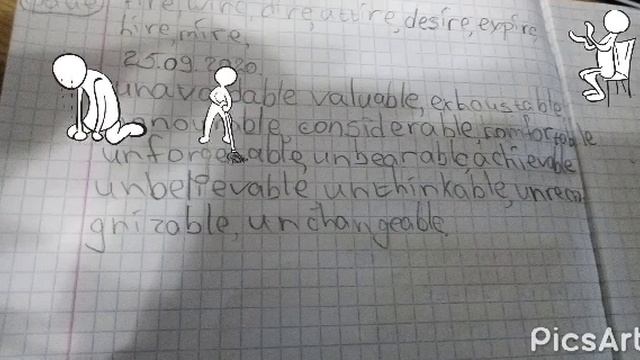 fire, wire, dire, attire, desire, expire,
hire, mire,
25.09.2020.
valuable, exhaustable,
considerable, comfortable
unbearable, achievable
unbelievable unthinkable, unreco
gnizable, unchangeable.
PicsArt